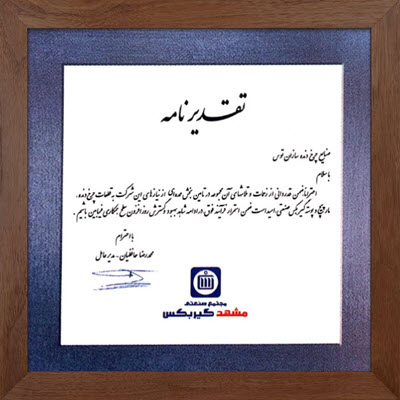 تقدیرنامه
صنایع چرخ دنده سازان توس
با سلام
احتراماً ضمن قدردانی از زحمات و تلاشهای آن مجموعه در تامین بخش عمده‌ای از نیازهای این شرکت به قطعات چرخ دنده،
مارپیچ و پوسته گیربکس صنعتی، امید است ضمن استمرار فرآیند فوق در ادامه شاهد بهبود و گسترش روز افزون سطح همکاری فیمابین باشیم.
با احترام
محمدرضا حافظیان - مدیرعامل
مجتمع صنعتی
مشهد گیربکس